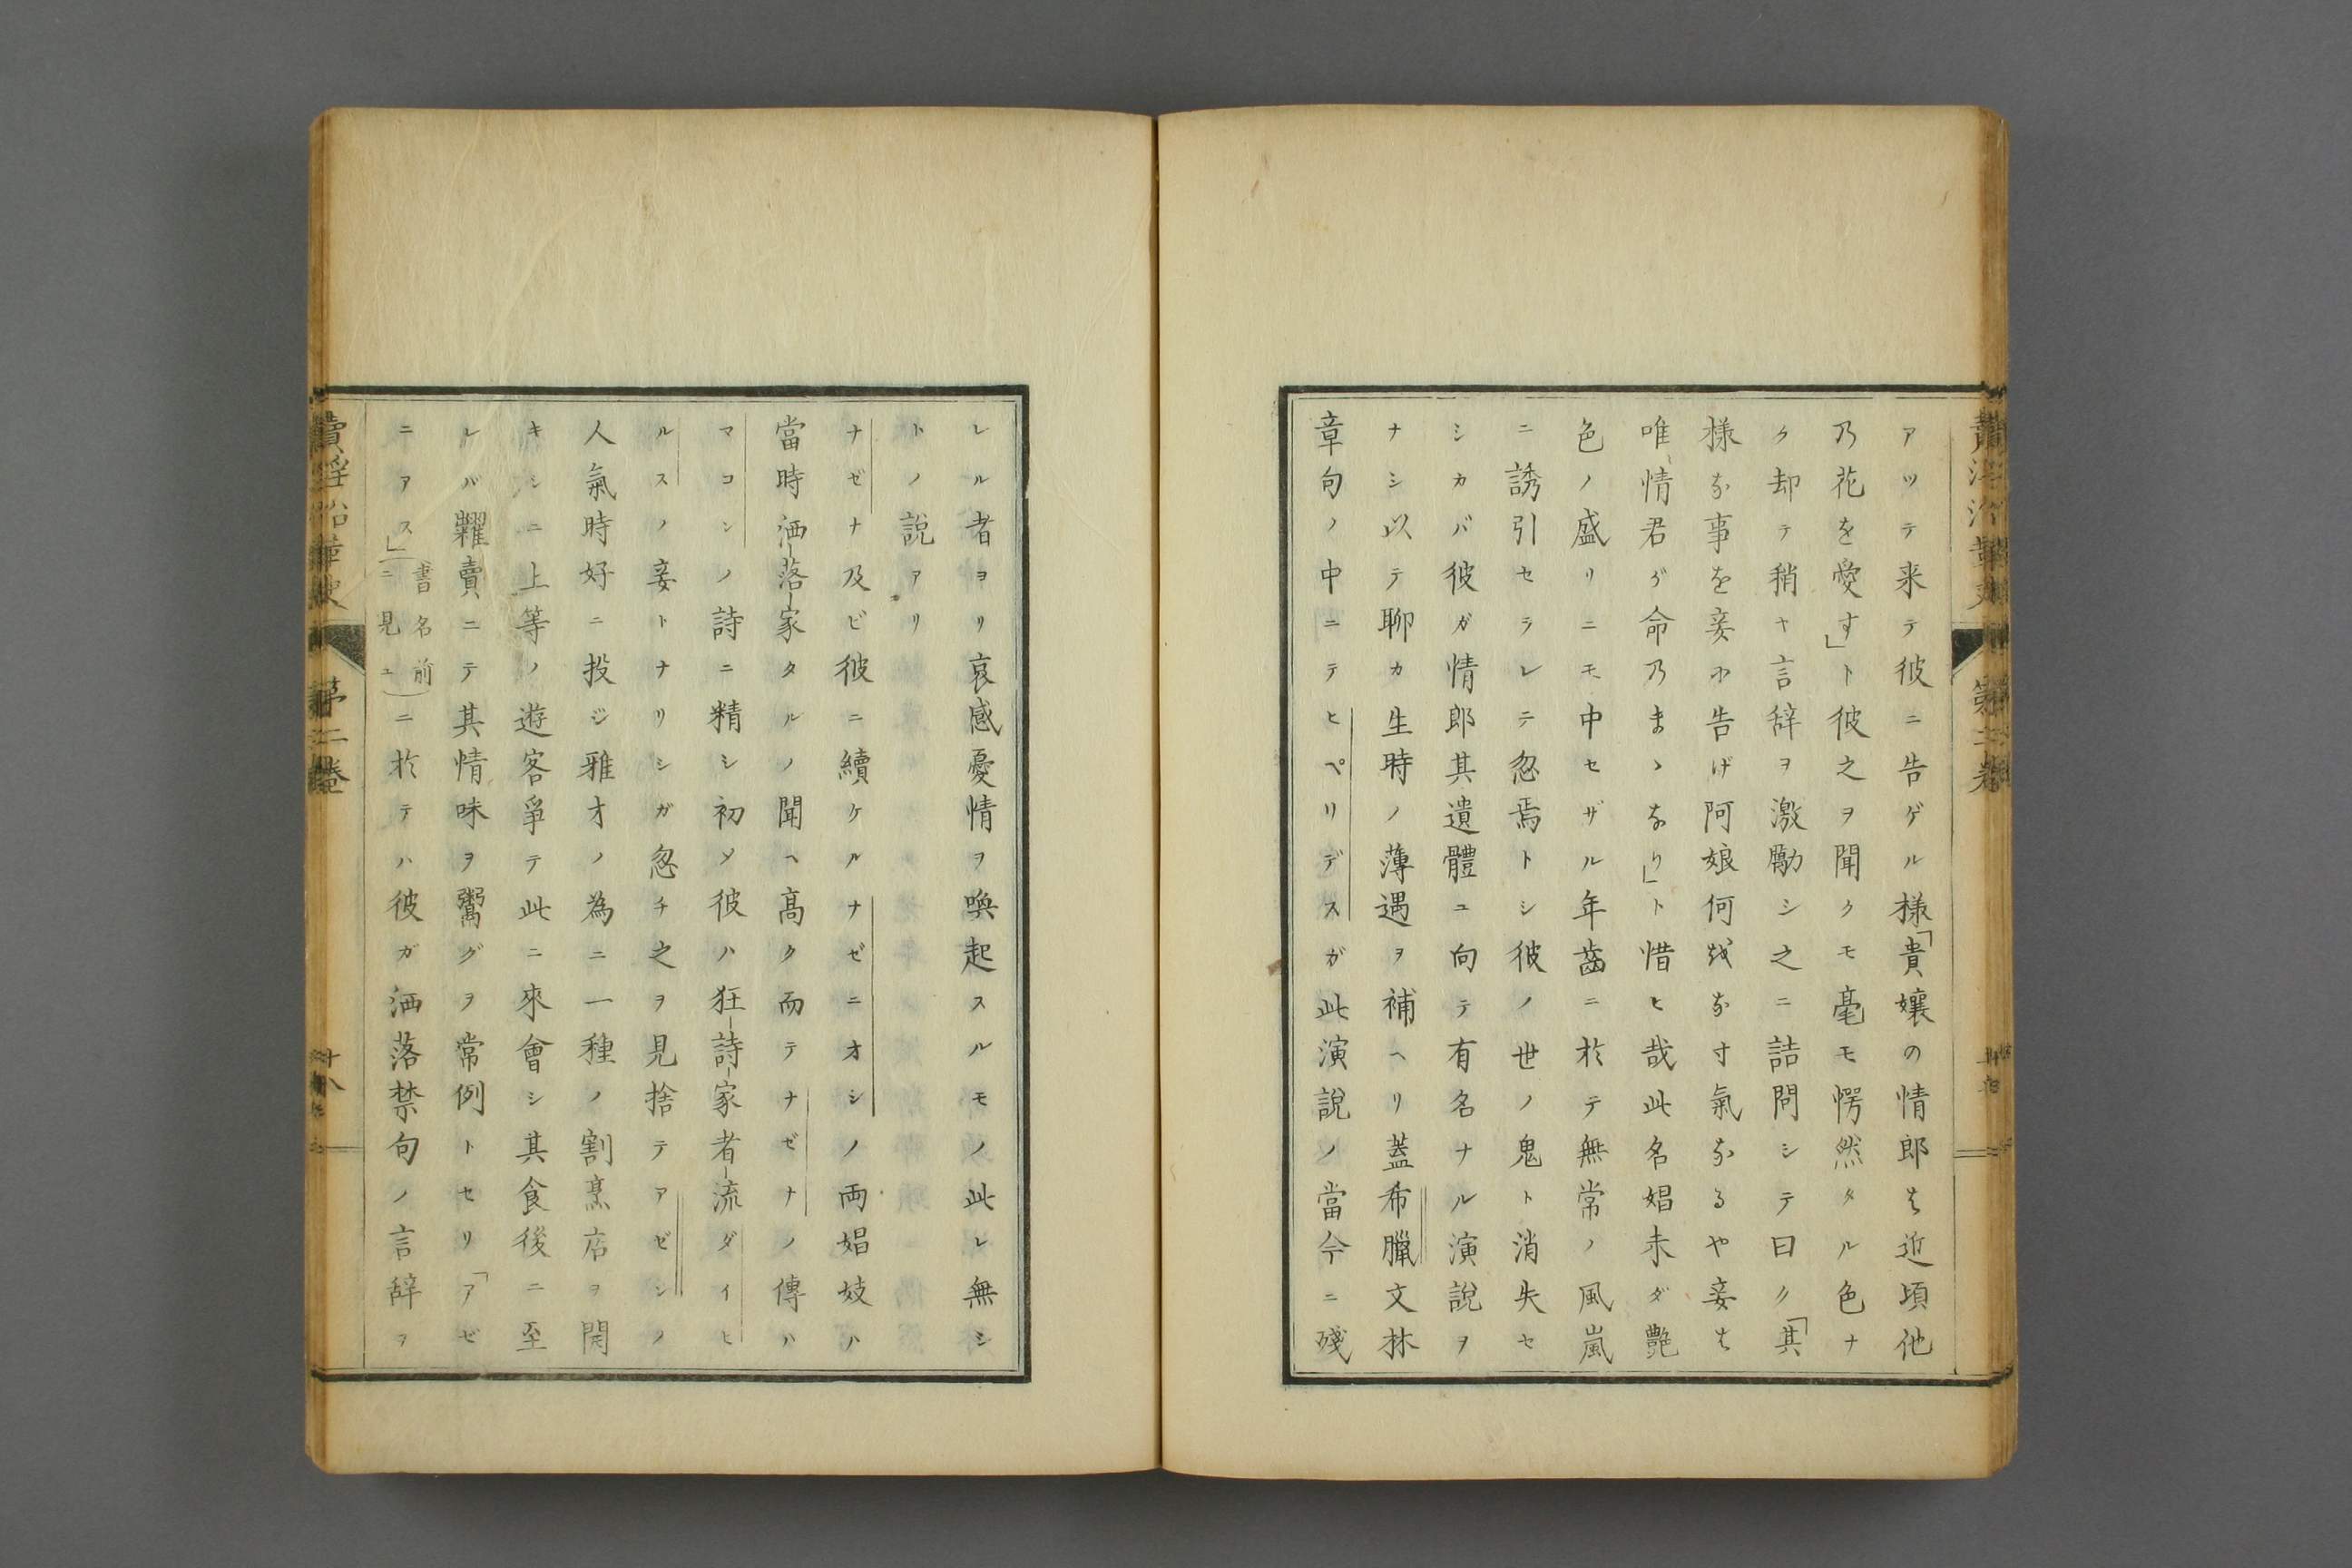 アツテ来テ彼ニ告ゲル様「貴嬢の情郎は近頃他
乃花を愛す」ト彼之ヲ聞クモ毫モ愕然タル色ナ
ク却テ稍ヤ言辞ヲ激勵シ之ニ詰問シテ曰ク「其
様な事を妾に告げ阿娘何故なす氣なるや妾は
唯、情君が命乃まゝなり」ト惜ヒ哉此名娼未ダ艶
色ノ盛リニモ中セザル年齒ニ於テ無常ノ風嵐
ニ誘引セラレテ忽焉トシ彼ノ世ノ鬼ト消失セ
シカバ彼ガ情郎其遺體ユ向テ有名ナル演説ヲ
ナシ以テ聊カ生時ノ薄遇ヲ補ヘリ蓋希臘文林
章句ノ中ニテヒペリデスガ此演説ノ當今ニ殘
第二巻
レル者ヨリ哀感憂情ヲ喚起スルモノ此レ無シ
トノ説アリ
ナゼナ及ビ彼ニ續ケルナゼニオシノ両娼妓ハ
當時洒落家タルノ聞ヘ高ク而テナゼナノ傳ハ
マコンノ詩ニ精シ初メ彼ハ狂詩家者流ダイヒ
ルスノ妾トナリシガ忽チ之ヲ見捨テアゼシノ
人氣時好ニ投ジ雅才ノ為ニ一種ノ割烹店ヲ開
キシニ上等ノ遊客爭テ此ニ來會シ其食後ニ至
レバ糶賣ニテ其情味ヲ鬻グヲ常例トセリ「アゼ
ニアス」(書名前ニ見ユ)ニ於テハ彼ガ洒落禁句ノ言辞ヲ
賣淫沿革史
第二巻
廿八